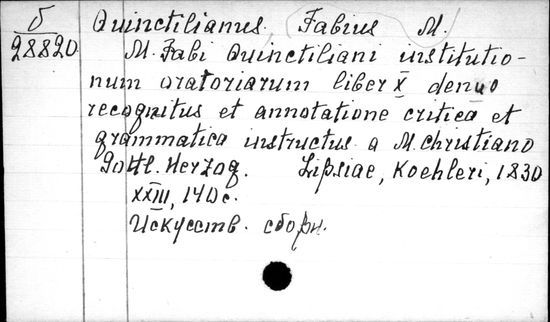 Б
28820
Quinctilianus, Fabius M.
M. Fabi Quinctiliani institutio-
num oratoriarum liber X denuo
recognitus et annotatione critica et
grammatica instructus a M. Christiano
Gottl. Herzog. Lipsiae, Koehleri, 1830
XXIII, 140 с.
Искусств. сборн.